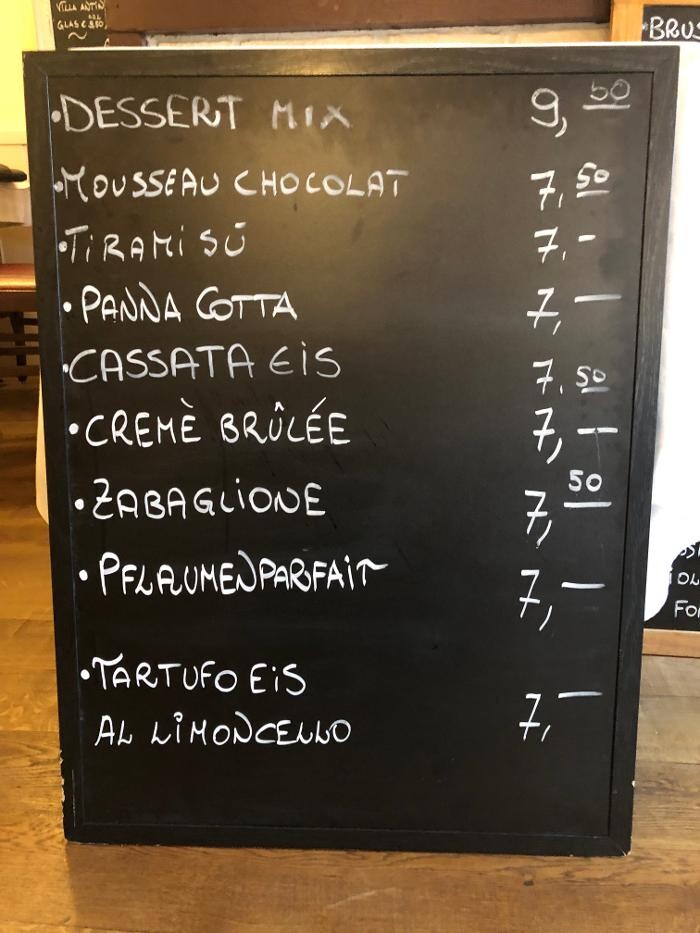 VILLA ANTIN
0.2L
GLAS € 8.50
BRUS
• DESSERT MIX 9,50
• MOUSSEAU CHOCOLAT 7,50
• TIRAMI SÚ 7.-
• PANNA COTTA 7,—
• CASSATA EIS 7.50
• CREMÈ BRÛLÉE 7,—
• ZABAGLIONE 7,50
• PFLAUMENPARFAIT 7,—
• TARTUFO EIS
AL LIMONCELLO 7,—
FO